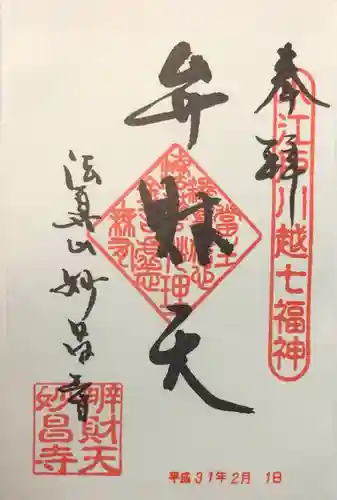 奉拝
小江戸川越七福神
弁財天
法眞山妙昌寺
弁財天
妙昌寺
平成31年2月 1日